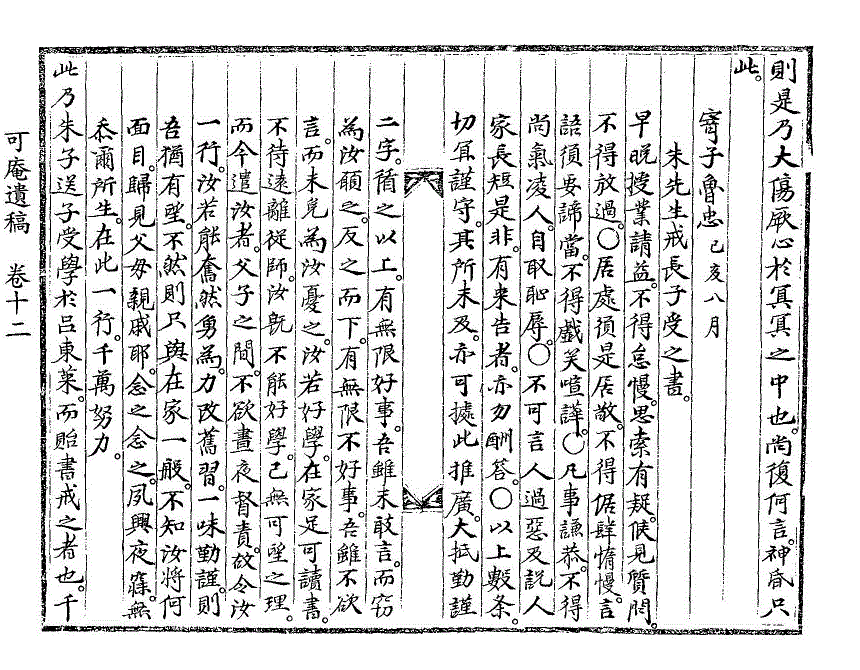 則是乃大傷厥心於冥冥之中也。尚復何言。神昏只
此。
寄子魯忠 己亥八月
朱先生戒長子受之書。
早晩授業請益。不得怠慢。思索有疑。候見質問。
不得放過。○居處須是居敬。不得倨肆惰慢。言
語須要諦當。不得戱笑喧譁。○凡事謙恭。不得
尙氣凌人。自取恥辱。○不可言人過惡及說人
家長短是非。有來告者。亦勿酬答。○以上數条。
切宜謹守。其所未及。亦可據此推廣。大抵勤謹
二字。循之以上。有無限好事。吾雖未敢言。而窃
為汝願之。反之而下。有無限不好事。吾雖不欲
言。而未免為汝憂之。汝若好學。在家足可讀書。
不待遠離從師。汝旣不能好學。已無可望之理。
而今遣汝者。父子之間。不欲晝夜督責。故令汝
一行。汝若能奮然勇為。力改舊習。一味勤謹。則
吾猶有望。不然則只與在家一般。不知汝將何
面目。歸見父母親戚耶。念之念之。夙興夜寐。無
忝爾所生。在此一行。千萬努力。
此乃朱子送子受學於呂東萊。而貽書戒之者也。千
可庵遺稿 卷十二